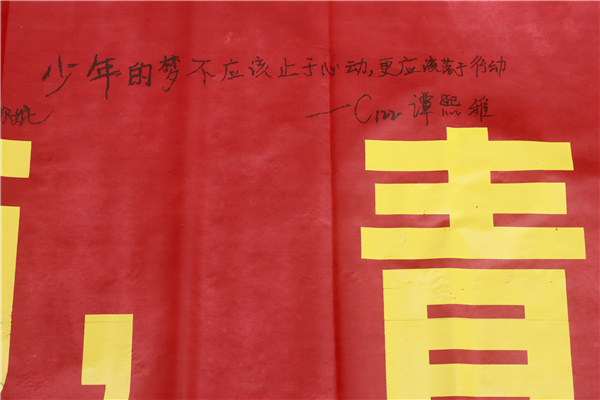 少年的梦不应该止于心动,更应该落于行动
—C122 谭熙雅
,青